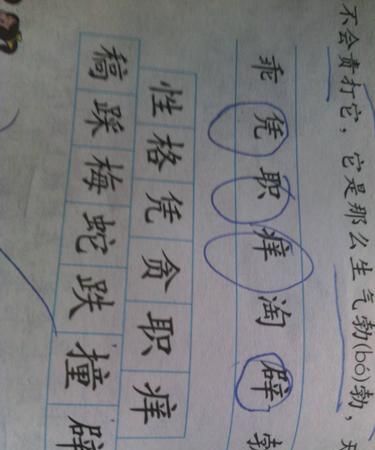 不会责打它，它是那么生气勃(bó)勃，
乖凭职痒淘辟勃
性格凭贪职痒
稿踩梅蛇跌撞辟